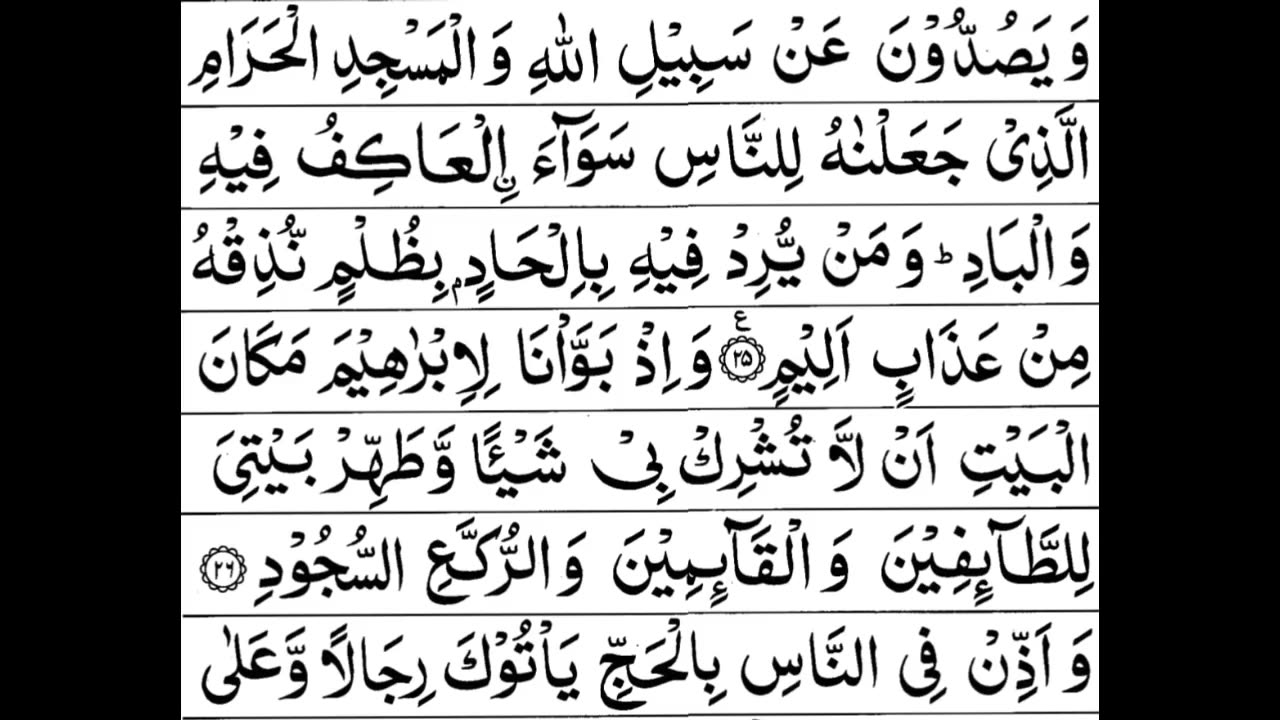 وَ يَصُدُّوْنَ عَنْ سَبِيْلِ اللّٰهِ وَ الْمَسْجِدِ الْحَرَامِ
الَّذِیْ جَعَلْنٰهُ لِلنَّاسِ سَوَآءَ ࣙالْعَاكِفُ فِیْهِ
وَ الْبَادِؕ وَ مَنْ یُّرِدْ فِیْهِ بِاِلْحَادٍۭ بِظُلْمٍ نُّذِقْهُ
مِنْ عَذَابٍ اَلِیْمٍ ۟ع ۲۵ وَ اِذْ بَوَّاْنَا لِاِبْرٰهِیْمَ مَكَانَ
الْبَیْتِ اَنْ لَّا تُشْرِكْ بِیْ شَیْـًٔا وَّ طَهِّرْ بَیْتِیَ
لِلطَّآىِٕفِیْنَ وَ الْقَآىِٕمِیْنَ وَ الرُّكَّعِ السُّجُوْدِ ۲۶
وَ اَذِّنْ فِی النَّاسِ بِالْحَجِّ یَاْتُوْكَ رِجَالًا وَّ عَلٰی